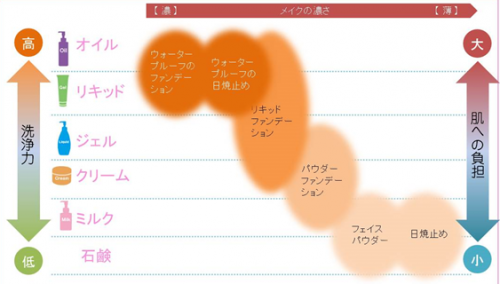 【 濃 】 メイクの濃さ 【 薄 】
高
オイル
リキッド
ジェル
クリーム
ミルク
石鹸
洗浄力
低
ウォーター
プルーフの
ファンデー
ション
ウォーター
プルーフの
日焼止め
リキッド
ファンデー
ション
パウダー
ファンデー
ション
フェイス
パウダー
日焼止め
大
肌への負担
小
Oil
Gel
Cream